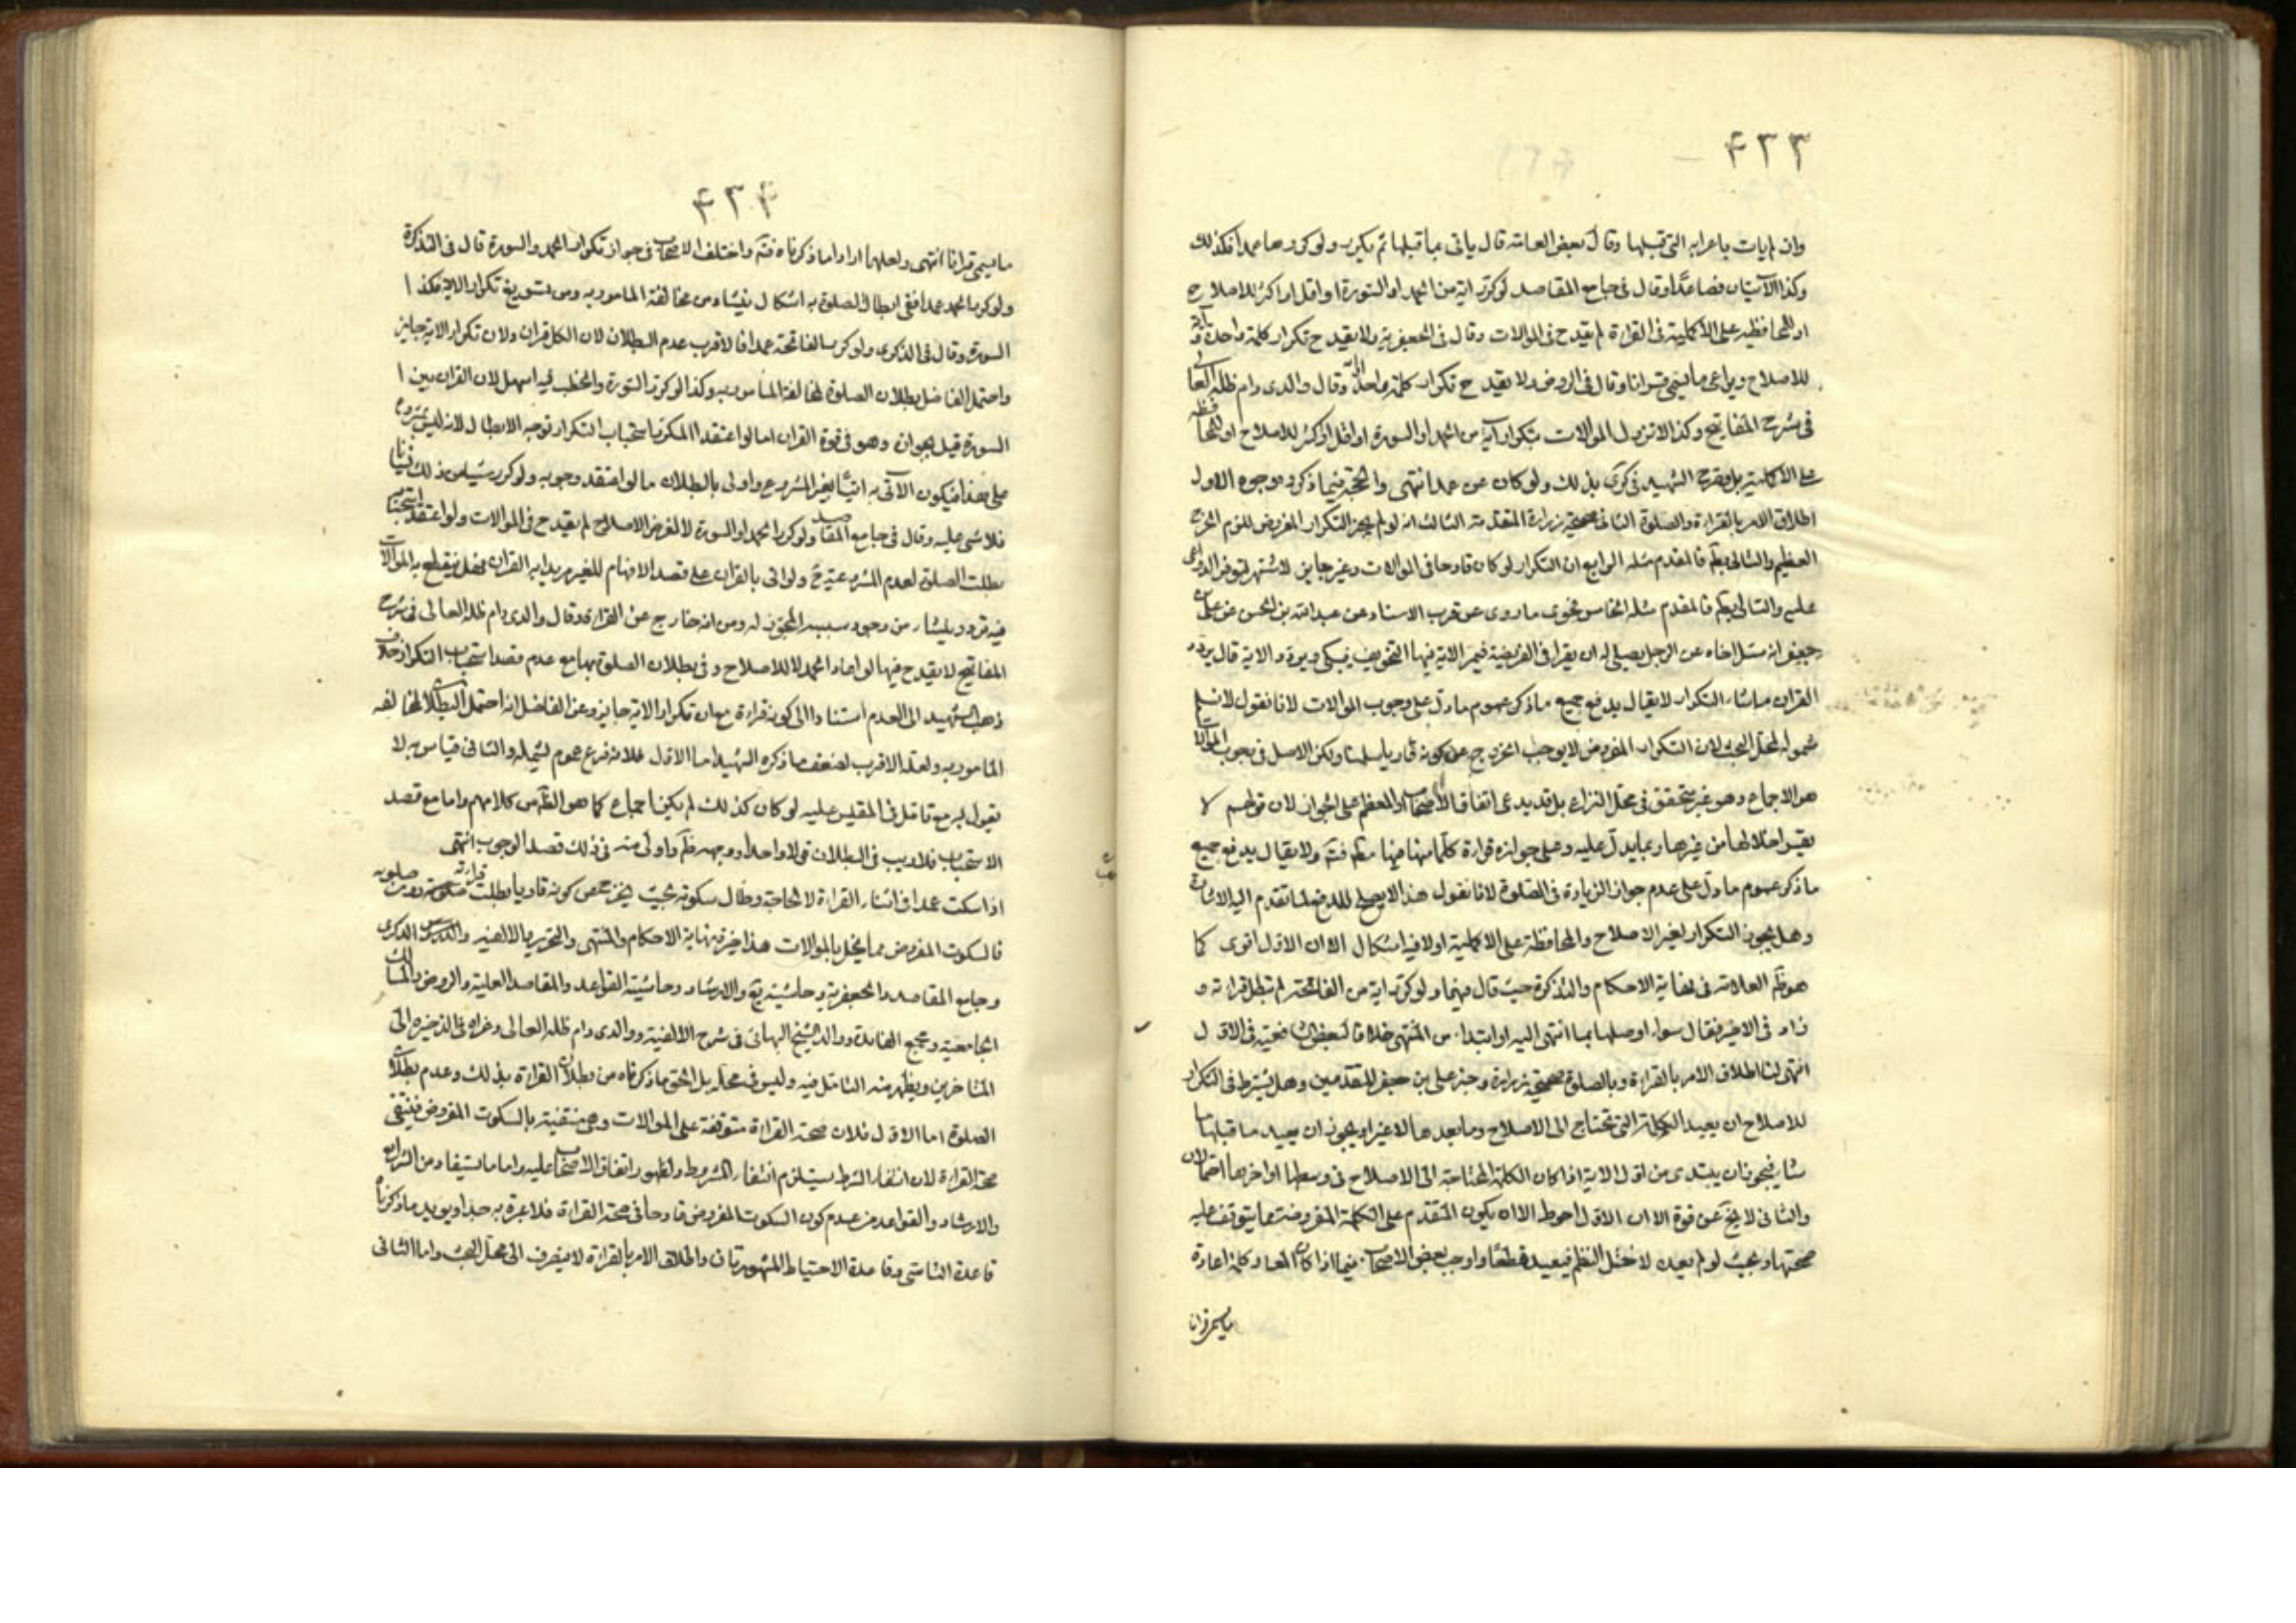 ۴۳۳
وان لم يات باعرابه التي قبلها وقال بعض العامة قال ياتي بما قبلها ثم يكرر ولو كررها عمدا فكذلك
وكذا الآيتان فصاعدا وقال في جامع المقاصد لو كرر اية من الحمد او السورة او اقل او اكثر للاصلاح
او للمحافظة على الاكملية في القراءة لم يقدح في الموالات وقال في الجعفرية ولا يقدح تكرار كلمة واحدة
للاصلاح ويراعى ما يسمى قرانا وقال في الروض ولا يقدح تكرار كلمة واحدة وقال والدي دام ظله العالي
في شرح المفاتيح وكذا لا تزول الموالات بتكرار آية من الحمد او السورة او اقل او اكثر للاصلاح او للمحافظة
على الاكملية بل صرح الشهيد في كرى بذلك ولو كان عن عمد انتهى والحجة فيما ذكره وجوه الاول
اطلاق الامر بالقراءة والصلوة الثاني صحيحة زرارة المتقدمة الثالث انه لو لم يجز التكرار المفروض للزم الحرج
العظيم والتالي بط فالمقدم مثله الرابع ان التكرار لو كان قادحا في الموالات وغير جايز لاشتهر لتوفر الدواعي
عليه والتالي بط فالمقدم مثله الخامس فحوى ما روى عن قرب الاسناد عن عبدالله بن الحسن عن علي بن
جعفر انه سئل اخاه عن الرجل يصلي له ان يقرا في الفريضة فيمر الاية فيها التخويف فيبكي ويردد الاية قال يردد
القران ماشاء التكرار لا يقال يدفع جميع ما ذكر عموم ما دل على وجوب الموالات لانا نقول لا نسلم
شموله لمحل البحث لان التكرار المفروض لا يوجب الخروج عن كونه قاريا سلمنا ولكن الاصل في وجوب الموالات
هو الاجماع وهو غير متحقق في محل النزاع بل قد يدعى اتفاق الاصحاب او المعظم على الجواز لان قولهم لا
ما ذكر عموم ما دل على عدم جواز الزيادة في الصلوة لانا نقول هذا لا يصلح للدفع لما تقدم اليه الاشارة
وهل يجوز التكرار لغير الاصلاح والمحافظة على الاكملية اولا فيه اشكال الا ان الاول اقوى كما
هو ظ العلامة في نهاية الاحكام والتذكرة حيث قال فيهما ولو كرر اية من الفاتحة لم تبطل قراءته و
زاد في الاخير فقال سواء اوصلها بما انتهى اليه او ابتدا من المنتهى خلافا لبعض الشافعية في الاول
انتهى لنا اطلاق الامر بالقراءة وبالصلوة صحيحة زرارة وخبر علي بن جعفر المتقدمين وهل يشترط في التكرار
للاصلاح ان يعيد الكلمة التي تحتاج الى الاصلاح وما بعدها لا غير او يجوز ان يعيد ما قبلها
شا فيجوز ان يبتدى من اول الاية اذا كان الكلمة المحتاجة الى الاصلاح في وسطها او اخرها احتمالان
والثاني لا يخ عن قوة الا ان الاول احوط الا ان يكون المتقدم على الكلمة المفروضة مما يتوقف عليه
صحتها وبحيث لو لم يعيده لاختل النظم فيعيد قطعا واوجب بعض الاصحاب فيما اذا كان المعاد كلمة اعادة
ما يسمى قرانا
۴۳۴
ما يسمى قرانا انتهى ولعلهما ارادا ما ذكرناه فت واختلف الاصحاب في جواز تكرار الحمد والسورة قال في التذكرة
ولو كرر الحمد عمدا ففي ابطال الصلوة به اشكال ينشاء من مخالفة المامور به ومن تسويغ تكرار الاية فكذا
السورة وقال في الذكرى ولو كرر الفاتحة عمدا فالاقرب عدم البطلان لان الكل قران ولان تكرار الاية جايز
واحتمل الفاضل بطلان الصلوة لمخالفة المامور به وكذا لو كرر السورة والخطب فيه اسهل لان القران بين
السورة قيل بجوازه وهو في قوة القران اما لو اعتقد المكرر استحباب التكرار توجه الابطال لانه ليس بمشروع
على هذا فيكون الآتي به اتيا بغير المشروع واولى بالبطلان ما لو اعتقد وجوبه ولو كرر شيئا من ذلك نسيانا
فلا شى عليه وقال في جامع المقاصد ولو كرر الحمد او السورة لا لغرض الاصلاح لم يقدح في الموالات ولو اعتقد استحبابه
بطلت الصلوة لعدم المشروعية ح ولو اتى بالقران على قصد الافهام للغير مريدا به القران فهل ينقطع به الموالات
فيه تردد ينشاء من وجود سببه المجوز له ومن انه خارج عن القراءة وقال والدي دام ظله العالي في شرح
المفاتيح لا يقدح فيها لو اعاد الحمد لا للاصلاح وفي بطلان الصلوة بها مع عدم قصد استحباب التكرار خلاف
ذهب الشهيد الى العدم استنادا الى كونه قراءة مع ان تكرار الاية جايز وعن الفاضل انه احتمل البطلان لمخالفة
المامور به ولعله الاقرب لضعف ما ذكره الشهيد اما الاول فلانه فرع عموم يشمله والثاني قياس به لا
يقول به مع تامل في المقيس عليه لو كان كذلك لم يكن اجماع كما هو الظ من كلامهم واما مع قصد
الاستحباب فلا ريب في البطلان قولا واحدا ووجهه ظ واولى منه في ذلك قصد الوجوب انتهى
اذا سكت عمدا في اثناء القراءة لا لحاجة وطال سكوته بحيث يخرج عن كونه قاريا بطلت قراءته دون صلوته
فالسكوت المفروض مما يخل بالموالات هذا خيرة نهاية الاحكام والمنتهى والتحرير والالفية والدروس والذكرى
وجامع المقاصد والجعفرية وحاشية يع والارشاد وحاشية القواعد والمقاصد العلية والروض والمسالك
الجامعية ومجمع الفائدة ووالد الشيخ البهائي في شرح الالفية ووالدي دام ظله العالي وعزاه في الذخيرة الى
المتاخرين ويظهر منه التامل فيه وليس في محله بل الحق ما ذكرناه من بطلان القراءة بذلك وعدم بطلان
الصلوة اما الاول فلان صحة القراءة متوقفة على الموالات وهي منتفية بالسكوت المفروض فينتفي
صحة القراءة لان انتفاء الشرط يستلزم انتفاء المشروط ولظهور اتفاق الاصحاب عليه واما ما يستفاد من الشرايع
والارشاد والقواعد من عدم كون السكوت المفروض قادحا في صحة القراءة فلا عبرة به جدا ويويد ما ذكرناه
قاعدة التاسي وقاعدة الاحتياط المشهورتان واطلاق الامر بالقراءة لا ينصرف الى محل البحث واما الثاني